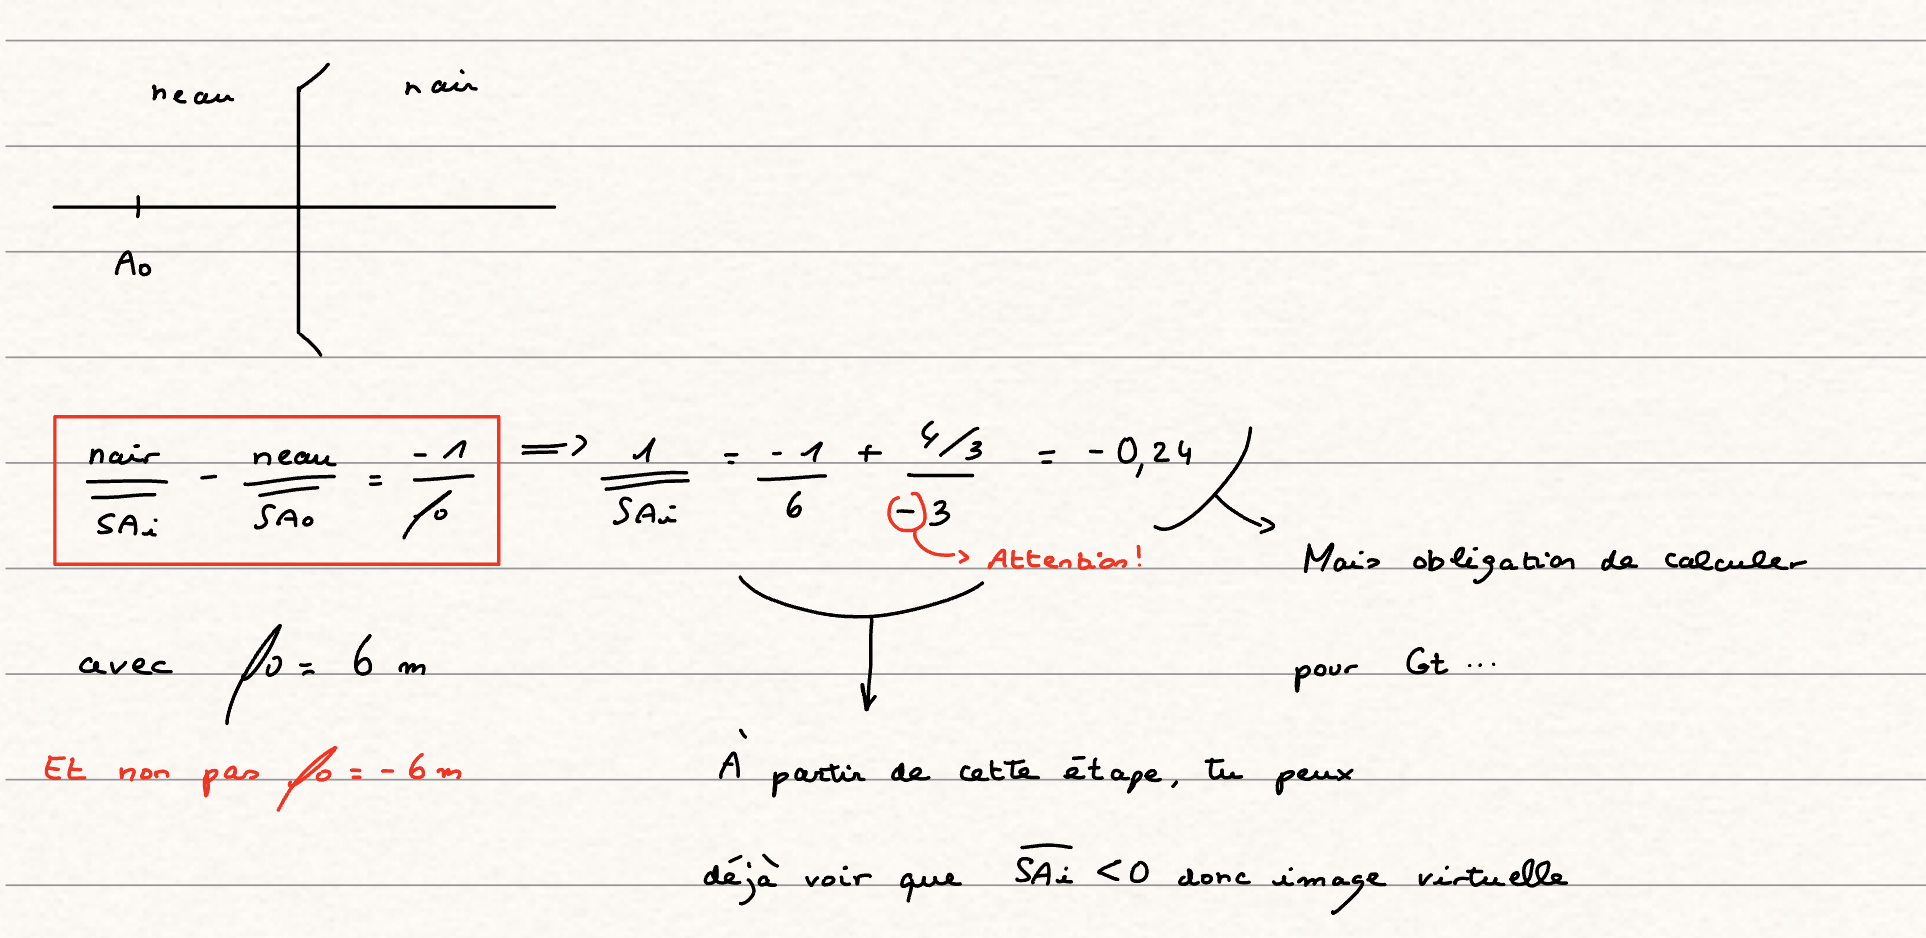 neau nair
Ao
nair/SAi - neau/SAo = -1/fo => 1/SAi = -1/6 + 4/3/-3 = -0,24
Attention!
Mais obligation de calculer
avec fo = 6 m
pour Gt ...
Et non pas fo = -6 m
À partir de cette étape, tu peux
déjà voir que SAi < 0 donc image virtuelle